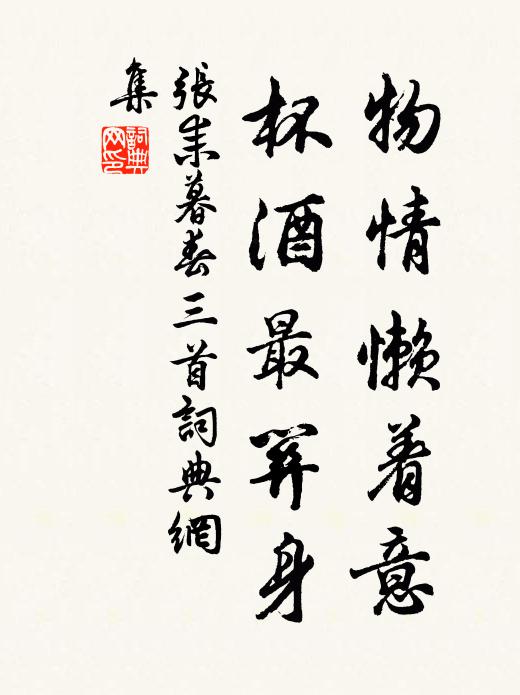 物情懶着意
杯酒最關身
張耒暮春三首詞典網
集
詞典
网印